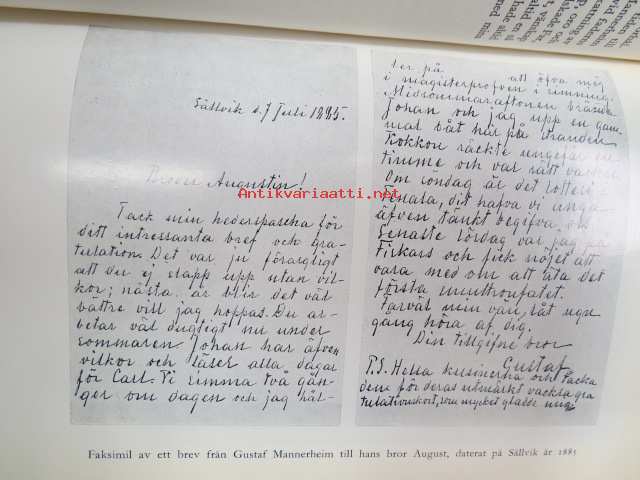 Sällvik d. 7 Juli 1885.
Broder Augustin!
Tack min hederspascha för
ditt intressanta bref och gra-
tulation. Det var ju förargligt
att du ej slapp upp utan vil-
kor; nästa år blir det väl
bättre vill jag hoppas. Du ar-
betar väl dugtigt nu under
sommaren. Johan har äfven
vilkor och läser alla dagar
för Carl. Vi simma två gån-
ger om dagen och jag hål-
ler på att öfva mig
i magisterprofven i simning.
Midsommaraftonen brände
Johan och jag upp en gam-
mal båt här på stranden
Kokkon räckte ungefär en
timme och var rätt vacker
Om söndag är det lotteri
Senata, dit hafva vi unga
äfven tänkt begifva, oss
Senaste lördag var jag på
Fiskars och fick nöjet att
vara med om att äta det
första multronfatet.
Farväl min vän, låt ngn
gång höra af dig.
Din tillgifne bror
Gustaf
P.S. Helsa kusinerna och tacka
dem för deras utmärkt vackra gra
tulationskort, som mycket gladde mig
Antikvariaatti.net
Faksimil av ett brev från Gustaf Mannerheim till hans bror August, daterat på Sällvik år 1885